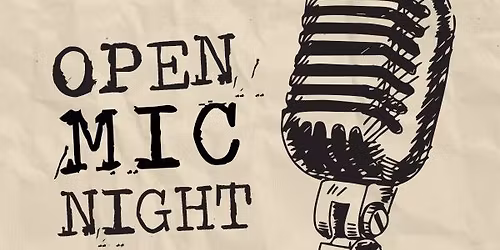 OPEN
MIC
NIGHT